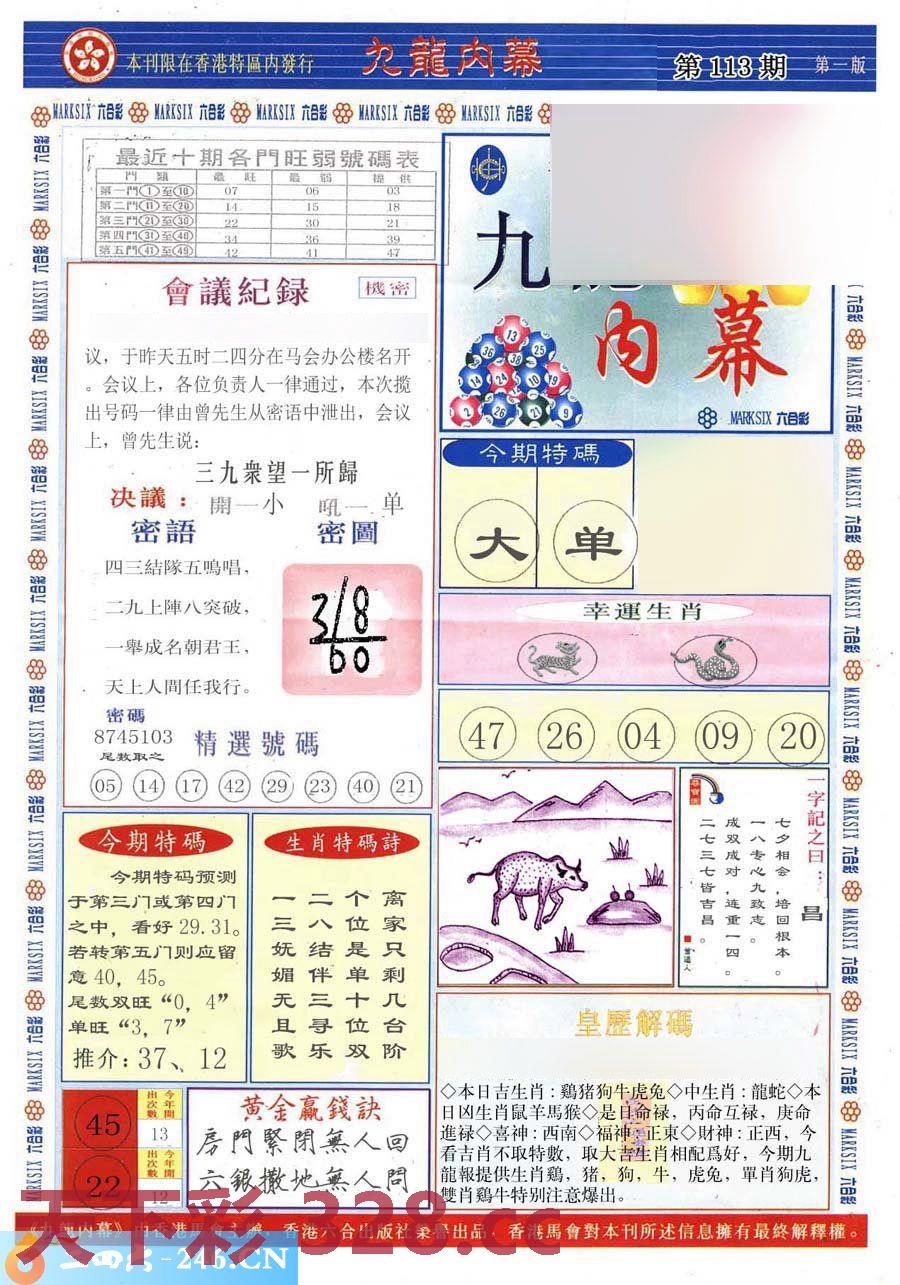 本刊限在香港特區内發行
九龍内幕
第113期
第一版
MARKSIX 六合彩 MARKSIX 六合彩 MARKSIX 六合彩 MARKSIX 六合彩 MARKSIX 六合彩
最近十期各門旺弱號碼表
門 類 最 旺 最 弱 提 供
第一門①至⑩ 07 06 03
第二門⑪至⑳ 14 15 18
第三門㉑至㉚ 22 30 21
第四門㉛至㊵ 34 36 39
第五門㊶至㊾ 42 41 47
九
内幕
13
36 38 25
14 24 10 19
2 26 21 9
MARKSIX 六合彩
會議紀録
機密
议，于昨天五时二四分在马会办公楼名开
。会议上，各位负责人一律通过，本次揽
出号码一律由曾先生从密语中泄出，会议
上，曾先生说：
三九衆望一所歸
决議：開一小 吼一单
密語
密圖
四三結隊五鳴唱，
二九上陣八突破，
一舉成名朝君王，
天上人間任我行。
318
60
密碼
8745103
尾数取之
精選號碼
05 14 17 42 29 23 40 21
今期特碼
大 单
幸運生肖
47 26 04 09 20
一字記之曰：昌
七夕相会，培回根本。
一八专心九致志。
成双成对，连重一四。
二七三七皆吉昌。
曾道人
今期特碼
今期特码预测
于第三门或第四门
之中，看好29.31。
若转第五门则应留
意40，45。
尾数双旺“0，4”
单旺“3，7”
推介：37、12
生肖特碼詩
离家只剩几台阶
个位是单十位双
二八结伴三寻乐
一三妩媚无且歌
皇歷解碼
◇本日吉生肖：鷄猪狗牛虎兔◇中生肖：龍蛇◇本
日凶生肖鼠羊馬猴◇是日命禄，丙命互禄，庚命
進禄◇喜神：西南◇福神：正東◇財神：正西，今
看吉肖不取特數，取大吉生肖相配爲好，今期九
龍報提供生肖鷄，猪，狗，牛，虎兔，單肖狗虎，
雙肖鷄牛特别注意爆出。
45
今年開
出次數
13
22
今年開
出次數
12
黄金贏錢訣
房門緊閉無人回
六銀撒地無人問
《九龍内幕》由香港馬會主辦，香港六合出版社榮譽出品，香港馬會對本刊所述信息擁有最終解釋權。
天下彩 328.cc
246.CN